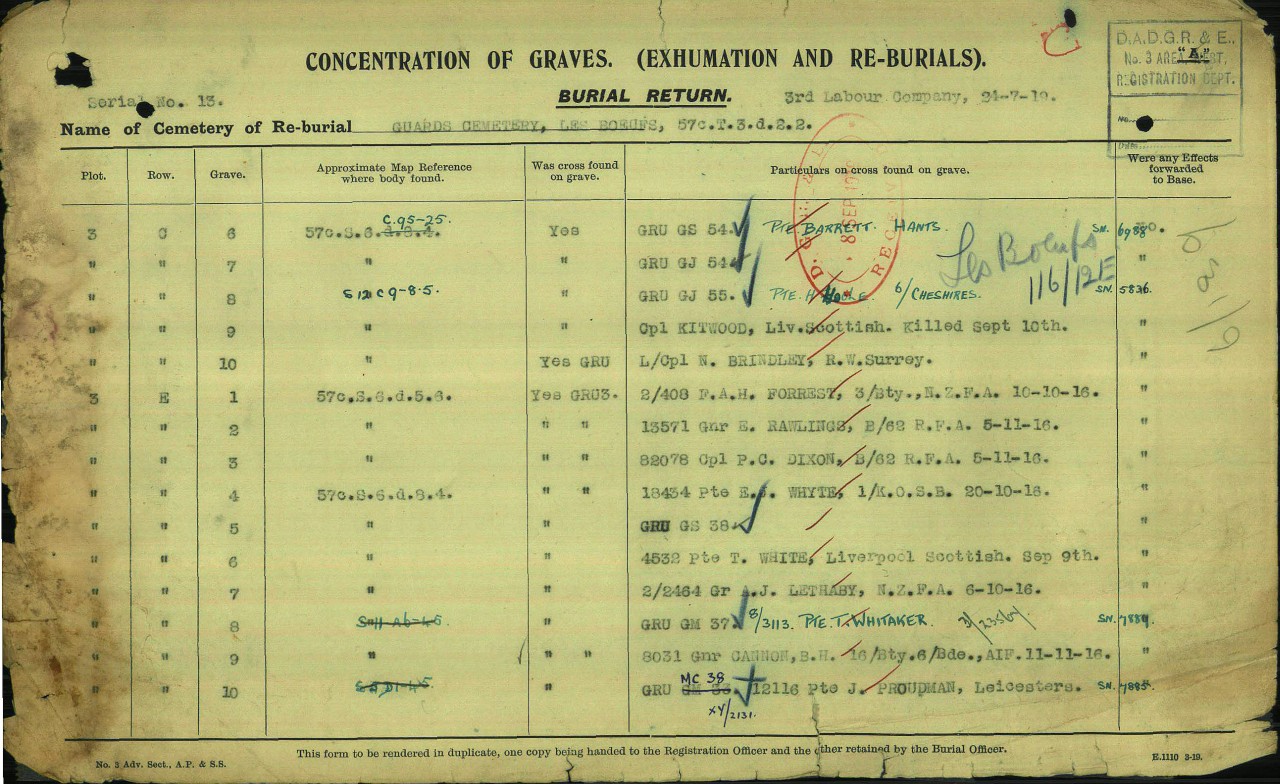 CONCENTRATION OF GRAVES. (EXHUMATION AND RE-BURIALS).
D.A.D.G.R. & E.,
"A"
No. 3 AREA
REGISTRATION DEPT.
No.
Date
Serial No. 13. BURIAL RETURN. 3rd Labour Company, 24-7-19.
Name of Cemetery of Re-burial GUARDS CEMETERY, LES BOEUFS, 57c.T.3.d.2.2.
Plot. Row. Grave. Approximate Map Reference where body found. Was cross found on grave. Particulars on cross found on grave. Were any Effects forwarded to Base.
C.95-25.
3 C 6 57c.S.6.d.8.4. Yes GRU GS 54. PTE BARRETT. HANTS. SN. 6988 No.
" " 7 " " GRU GJ 54. "
Les Boeufs
116/12E
" " 8 S12 C 9-8.5. " GRU GJ 55. PTE. H. HOOLE. 6/CHESHIRES. SN. 5836. "
" " 9 " " Cpl KITWOOD, Liv.Scottish. Killed Sept 10th. "
" " 10 " Yes GRU L/Cpl N. BRINDLEY, R.W.Surrey. "
3 E 1 57c.S.6.d.5.6. Yes GRU3. 2/408 F.A.H. FORREST, 3/Bty.,N.Z.F.A. 10-10-16. "
" " 2 " " " 13571 Gnr E. RAWLINGS, B/62 R.F.A. 5-11-16. "
" " 3 " " " 82078 Cpl P.C. DIXON, B/62 R.F.A. 5-11-16. "
" " 4 57c.S.6.d.8.4. " " 18434 Pte E.J. WHYTE, 1/K.O.S.B. 20-10-16. "
" " 5 " " GRU GS 38 "
" " 6 " " 4532 Pte T. WHITE, Liverpool Scottish. Sep 9th. "
" " 7 " " 2/2464 Gr A.J. LETHABY, N.Z.F.A. 6-10-16. "
" " 8 " GRU GM 37 8/3113. PTE. T. WHITAKER. SN. 7884. "
" " 9 " " " 8031 Gnr CANNON,B.H. 16/Bty.6/Bde.,AIF.11-11-16. "
MC 38
" " 10 " GRU 12116 Pte J. PROUDMAN, Leicesters. SN. 7885. "
XY/2131.
This form to be rendered in duplicate, one copy being handed to the Registration Officer and the other retained by the Burial Officer.
No. 3 Adv. Sect., A.P. & S.S. E.1110 3-19.